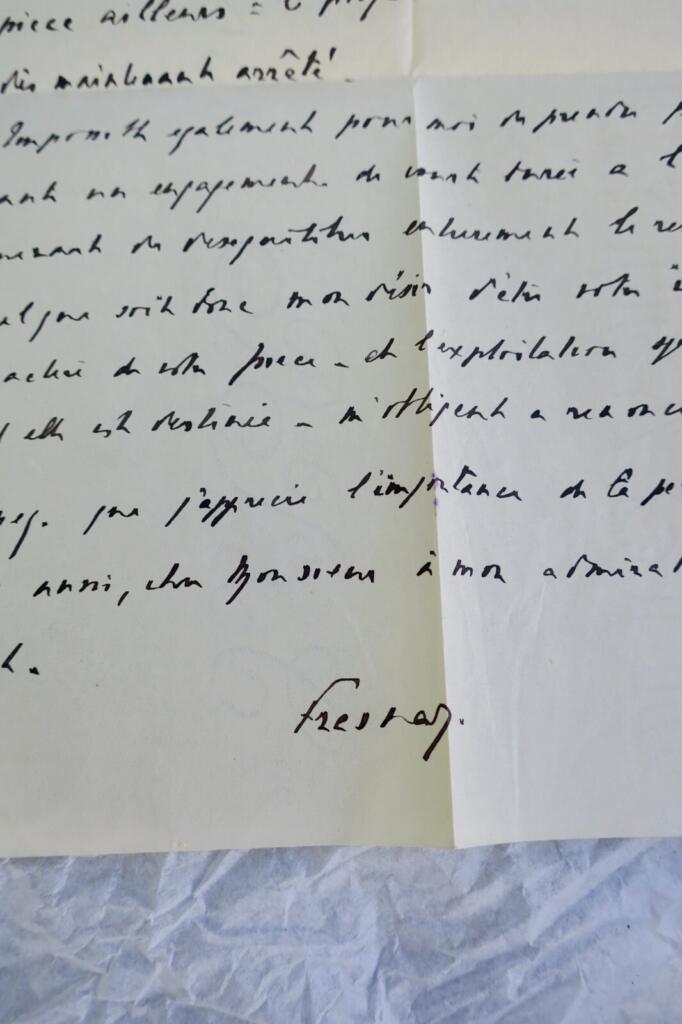 pièce ailleurs = le proj
dès maintenant arrêté.
Impossible également pour moi de prendre p
ant un engagement de courte durée a l
menant de déséquilibrer entièrement le re
el que soit donc mon désir d'être votre i
de votre pièce - et l'exploitation
elle est destinée - m'obligent a renonce
que j'apprécie l'importance de la pe
aussi, cher Monsieur à mon admirat
Fresnay.